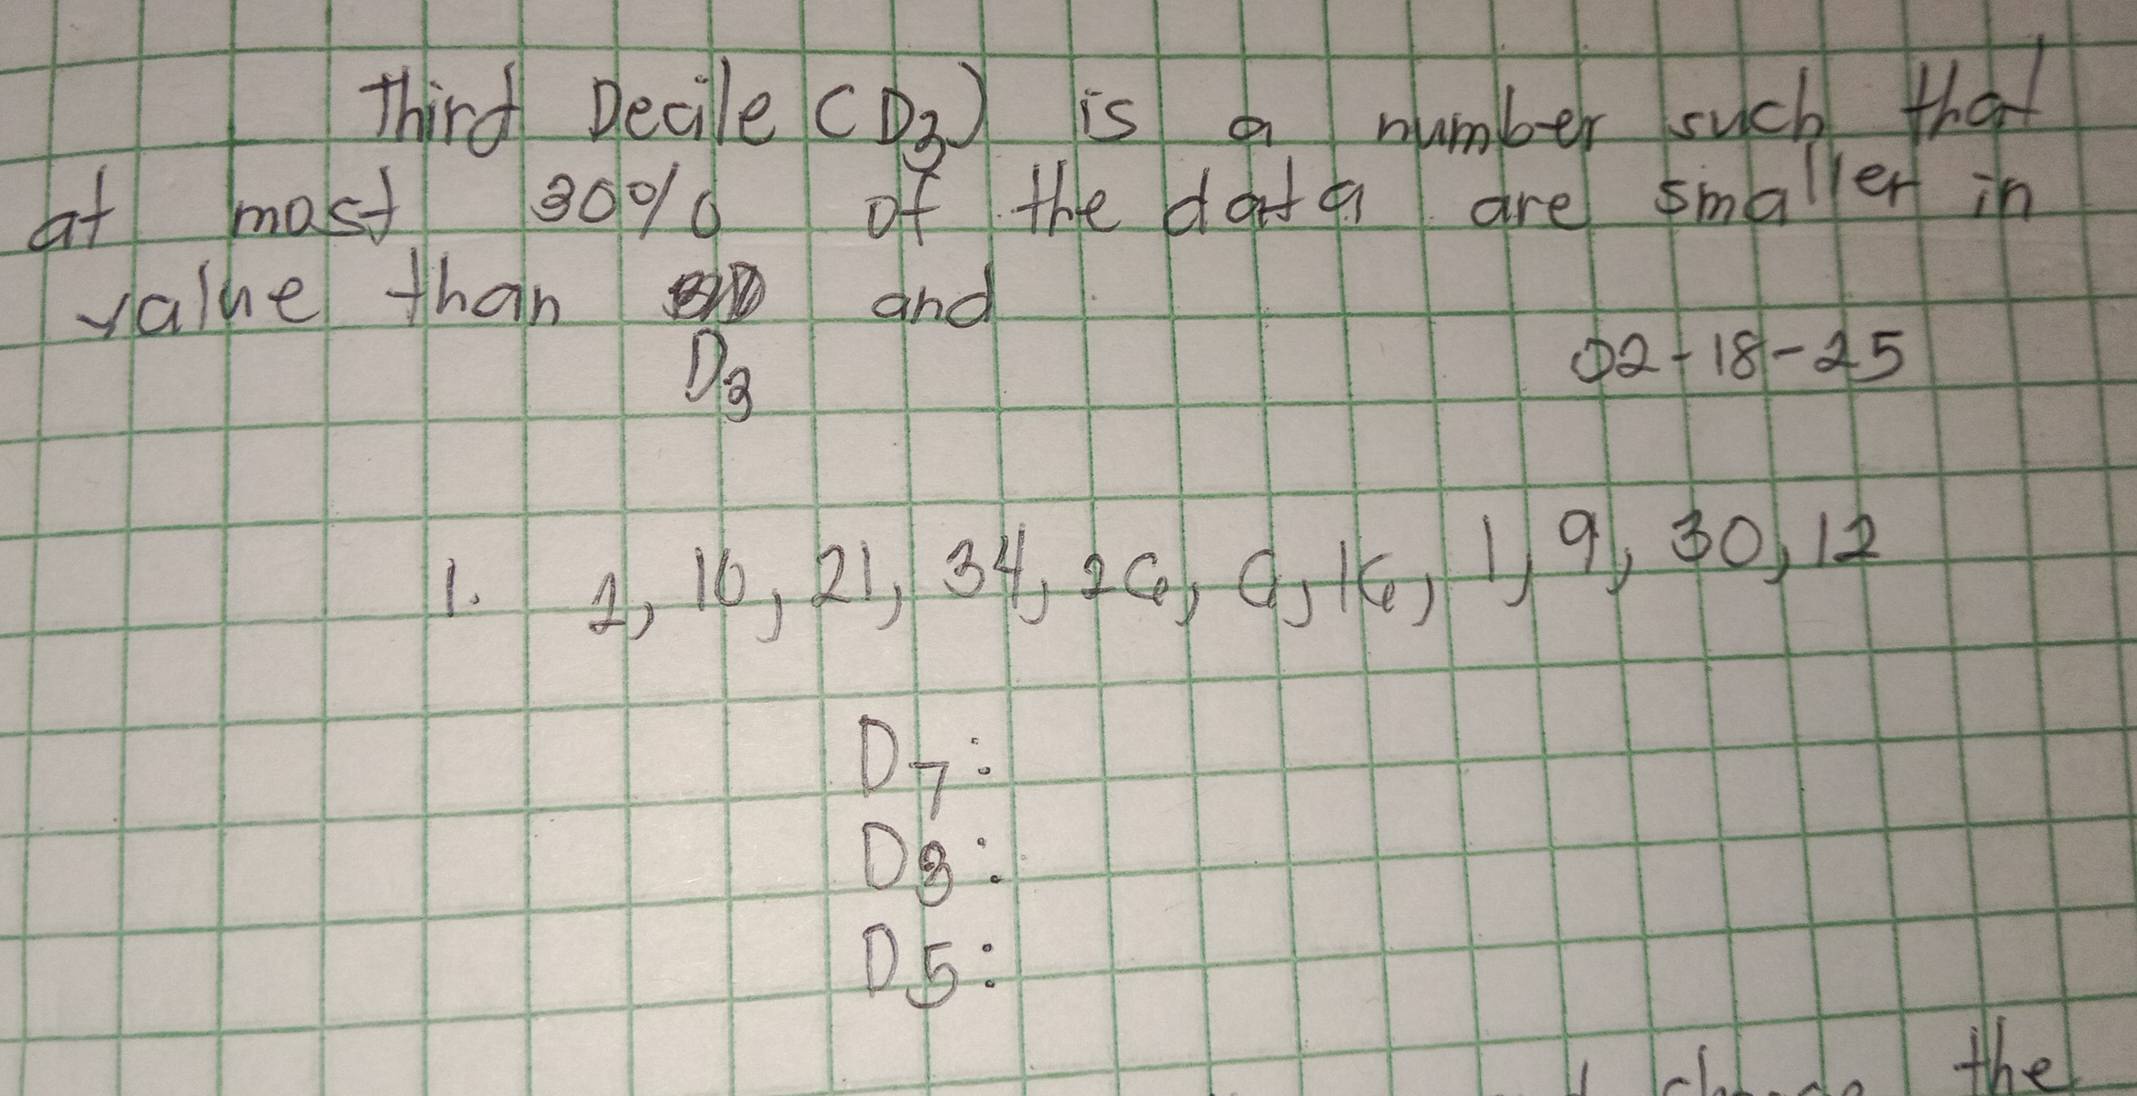 Third Decile (D3) is a number such that
at most 30% of the data are smaller in
value than and
D3
02-18-25
1. 2, 10, 21, 34, 26, 16, 1, 9, 30, 12
D7:
D8:
D5:
the